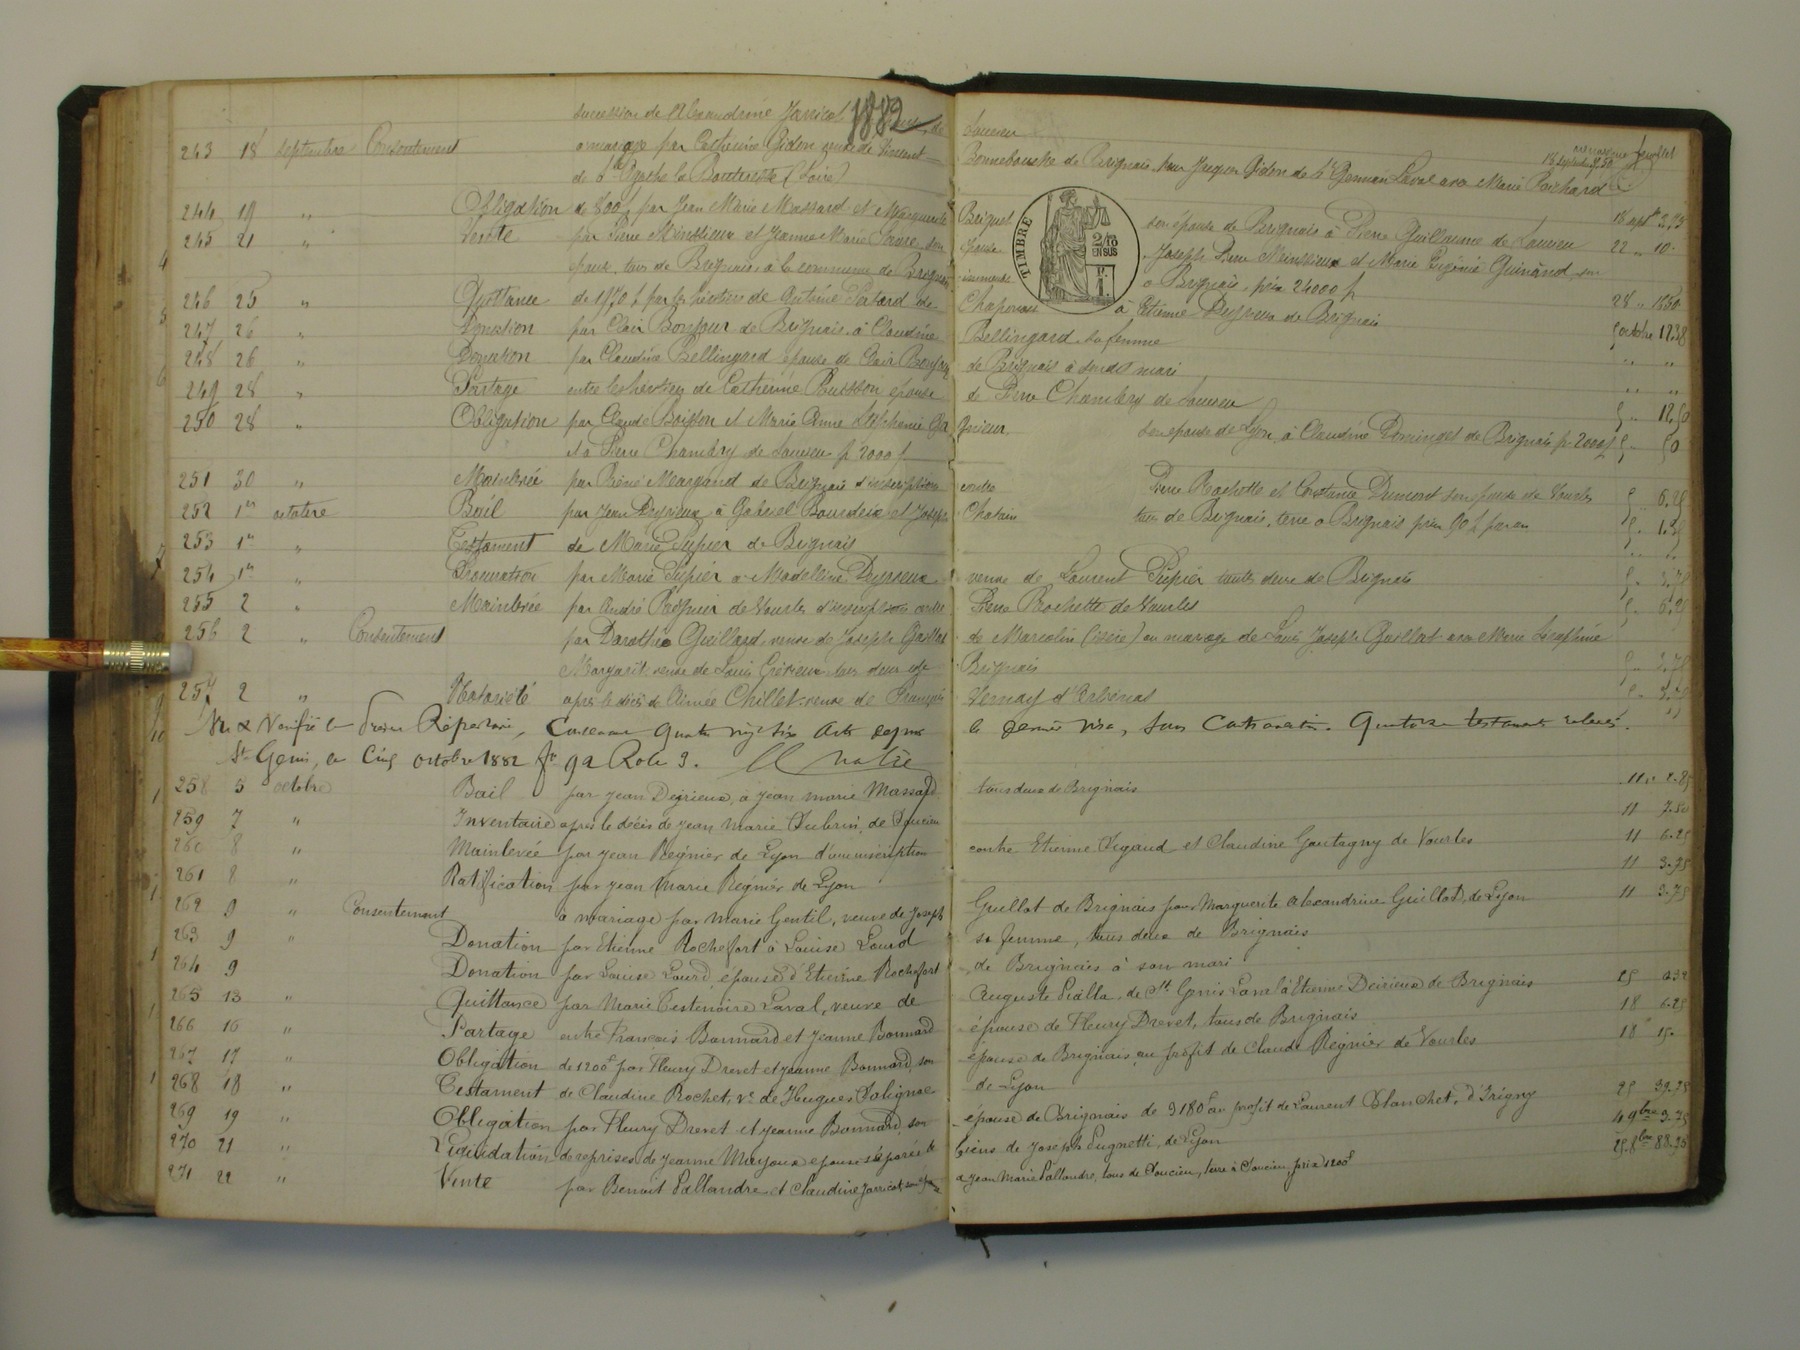 1882
succession de Alexandrine Jarricot
243 18 septembre Consentement a mariage par Catherine Gidon veuve de Vincent Bonnebouche de Brignais, pour Jacques Gidon de St Germain Laval avec Marie
de Ste Agathe la Bouteresse (Loire)
244 19 " Obligation de 800f par Jean Marie Massard et Marguerite son épouse de Brignais à Pierre Guillaume de Soucieu
TIMBRE 2/10 EN SUS
245 21 " Vente par Pierre Meinssieux et Jeanne Marie son Joseph Pierre Meinssieux et Marie Eugénie Guinand
tous de Brignais à la commune de Brignais à Brignais, prix 24000 f
246 25 " Quittance de 1170 f par les héritiers de Antoine de Chaponost à Etienne de Brignais 28 "
247 26 " Donation par Clair Bonjour de Brignais à Claudine Bellingard sa femme 5 octobre 17.38
248 26 " Donation par Claudine Bellingard épouse de Clair Bonjour de Brignais à sondit mari " "
249 28 " Partage entre les héritiers de Catherine épouse de Pierre Chambry de Soucieu
250 28 " Obligation par Claude et Marie Anne son épouse de Lyon, à Claudine de Brignais p. 2000f
et à Pierre Chambry de Soucieu p 2000 f
251 30 " Mainlevée par de Brignais d'inscription contre Pierre Rochette et Constance Dumont son épouse de Vourles 5 " 6.25
252 1er octobre Bail par Jean Deyrieux à Gabriel Bourdeix et Joseph Chatain tous de Brignais, terre à Brignais prix 90 f par an
253 1er " Testament de Marie Pupier de Brignais " "
254 1er " Procuration par Marie Pupier à Madelleine Deyrieux veuve de Laurent Pupier toutes deux de Brignais 5 " 3.75
255 2 " Mainlevée par André de Vourles d'inscription contre Pierre Rochette de Vourles 5 " 6.25
256 2 " Consentement par Dorothée Guillard veuve de Joseph Guillat de Marcolin (isère) au mariage de Louis Joseph Guillat avec Marie Joséphine
Margarit veuve de Louis tous deux de Brignais 5 " 3.75
257 2 " Notoriété après le décès de Aimée Chillet veuve de François Vernay d'Arbenas 5 " 3.75
Vu & Vérifié le présent Répertoire, contenant quatre vingt six Actes depuis le dernier visa, sans contravention. Quatorze testaments relevés.
St Genis, le Cinq octobre 1882 fo 92 Role 3.
258 5 octobre Bail par Jean Deyrieux, à Jean Marie Massard tous deux de Brignais 11 " 2.85
259 7 " Inventaire après le décès de Jean Marie de Soucieu 11 7.50
260 8 " Mainlevée par Jean Régnier de Lyon d'une inscription contre Etienne Rigaud et Claudine Goutagny de Vourles 11 6.25
261 8 " Ratification par Jean Marie Régnier de Lyon 11 3.75
262 9 " Consentement à mariage par Marie Gentil, veuve de Joseph Guillot de Brignais pour Marguerite Alexandrine Guillot, de Lyon 11 3.75
263 9 " Donation par Etienne Rochefort à Louise Lourd sa femme, tous deux de Brignais
264 9 Donation par Louise Lourd, épouse d'Etienne Rochefort de Brignais à son mari
265 13 " Quittance par Marie Testenoire Laval, veuve de Auguste Pialla, de St Genis Laval à Etienne Deirieux de Brignais 25
266 16 " Partage entre François Bonnard et Jeanne Bonnard épouse de Fleury Drevet, tous de Brignais 18 6.25
267 17 " Obligation de 1200f par Fleury Drevet et Jeanne Bonnard, son épouse de Brignais au profit de Claude Régnier de Vourles 18 15.
268 18 " Testament de Claudine Rochet, ve de Hugues Salignac de Lyon
269 19 " Obligation par Fleury Drevet et Jeanne Bonnard, son épouse de Brignais de 3180f au profit de Laurent Blanchet, d'Irigny 25 39.75
270 21 " Liquidation de reprises de Jeanne Mayoux épouse séparée de biens de Joseph Pugnetti, de Lyon 4 9bre 3.75
271 22 " Vente par Benoit Pallandre et Claudine Jarricot, son épouse à Jean Marie Pallandre, tous de Soucieu, terre à Soucieu, prix 1200f 25 8bre 88.75